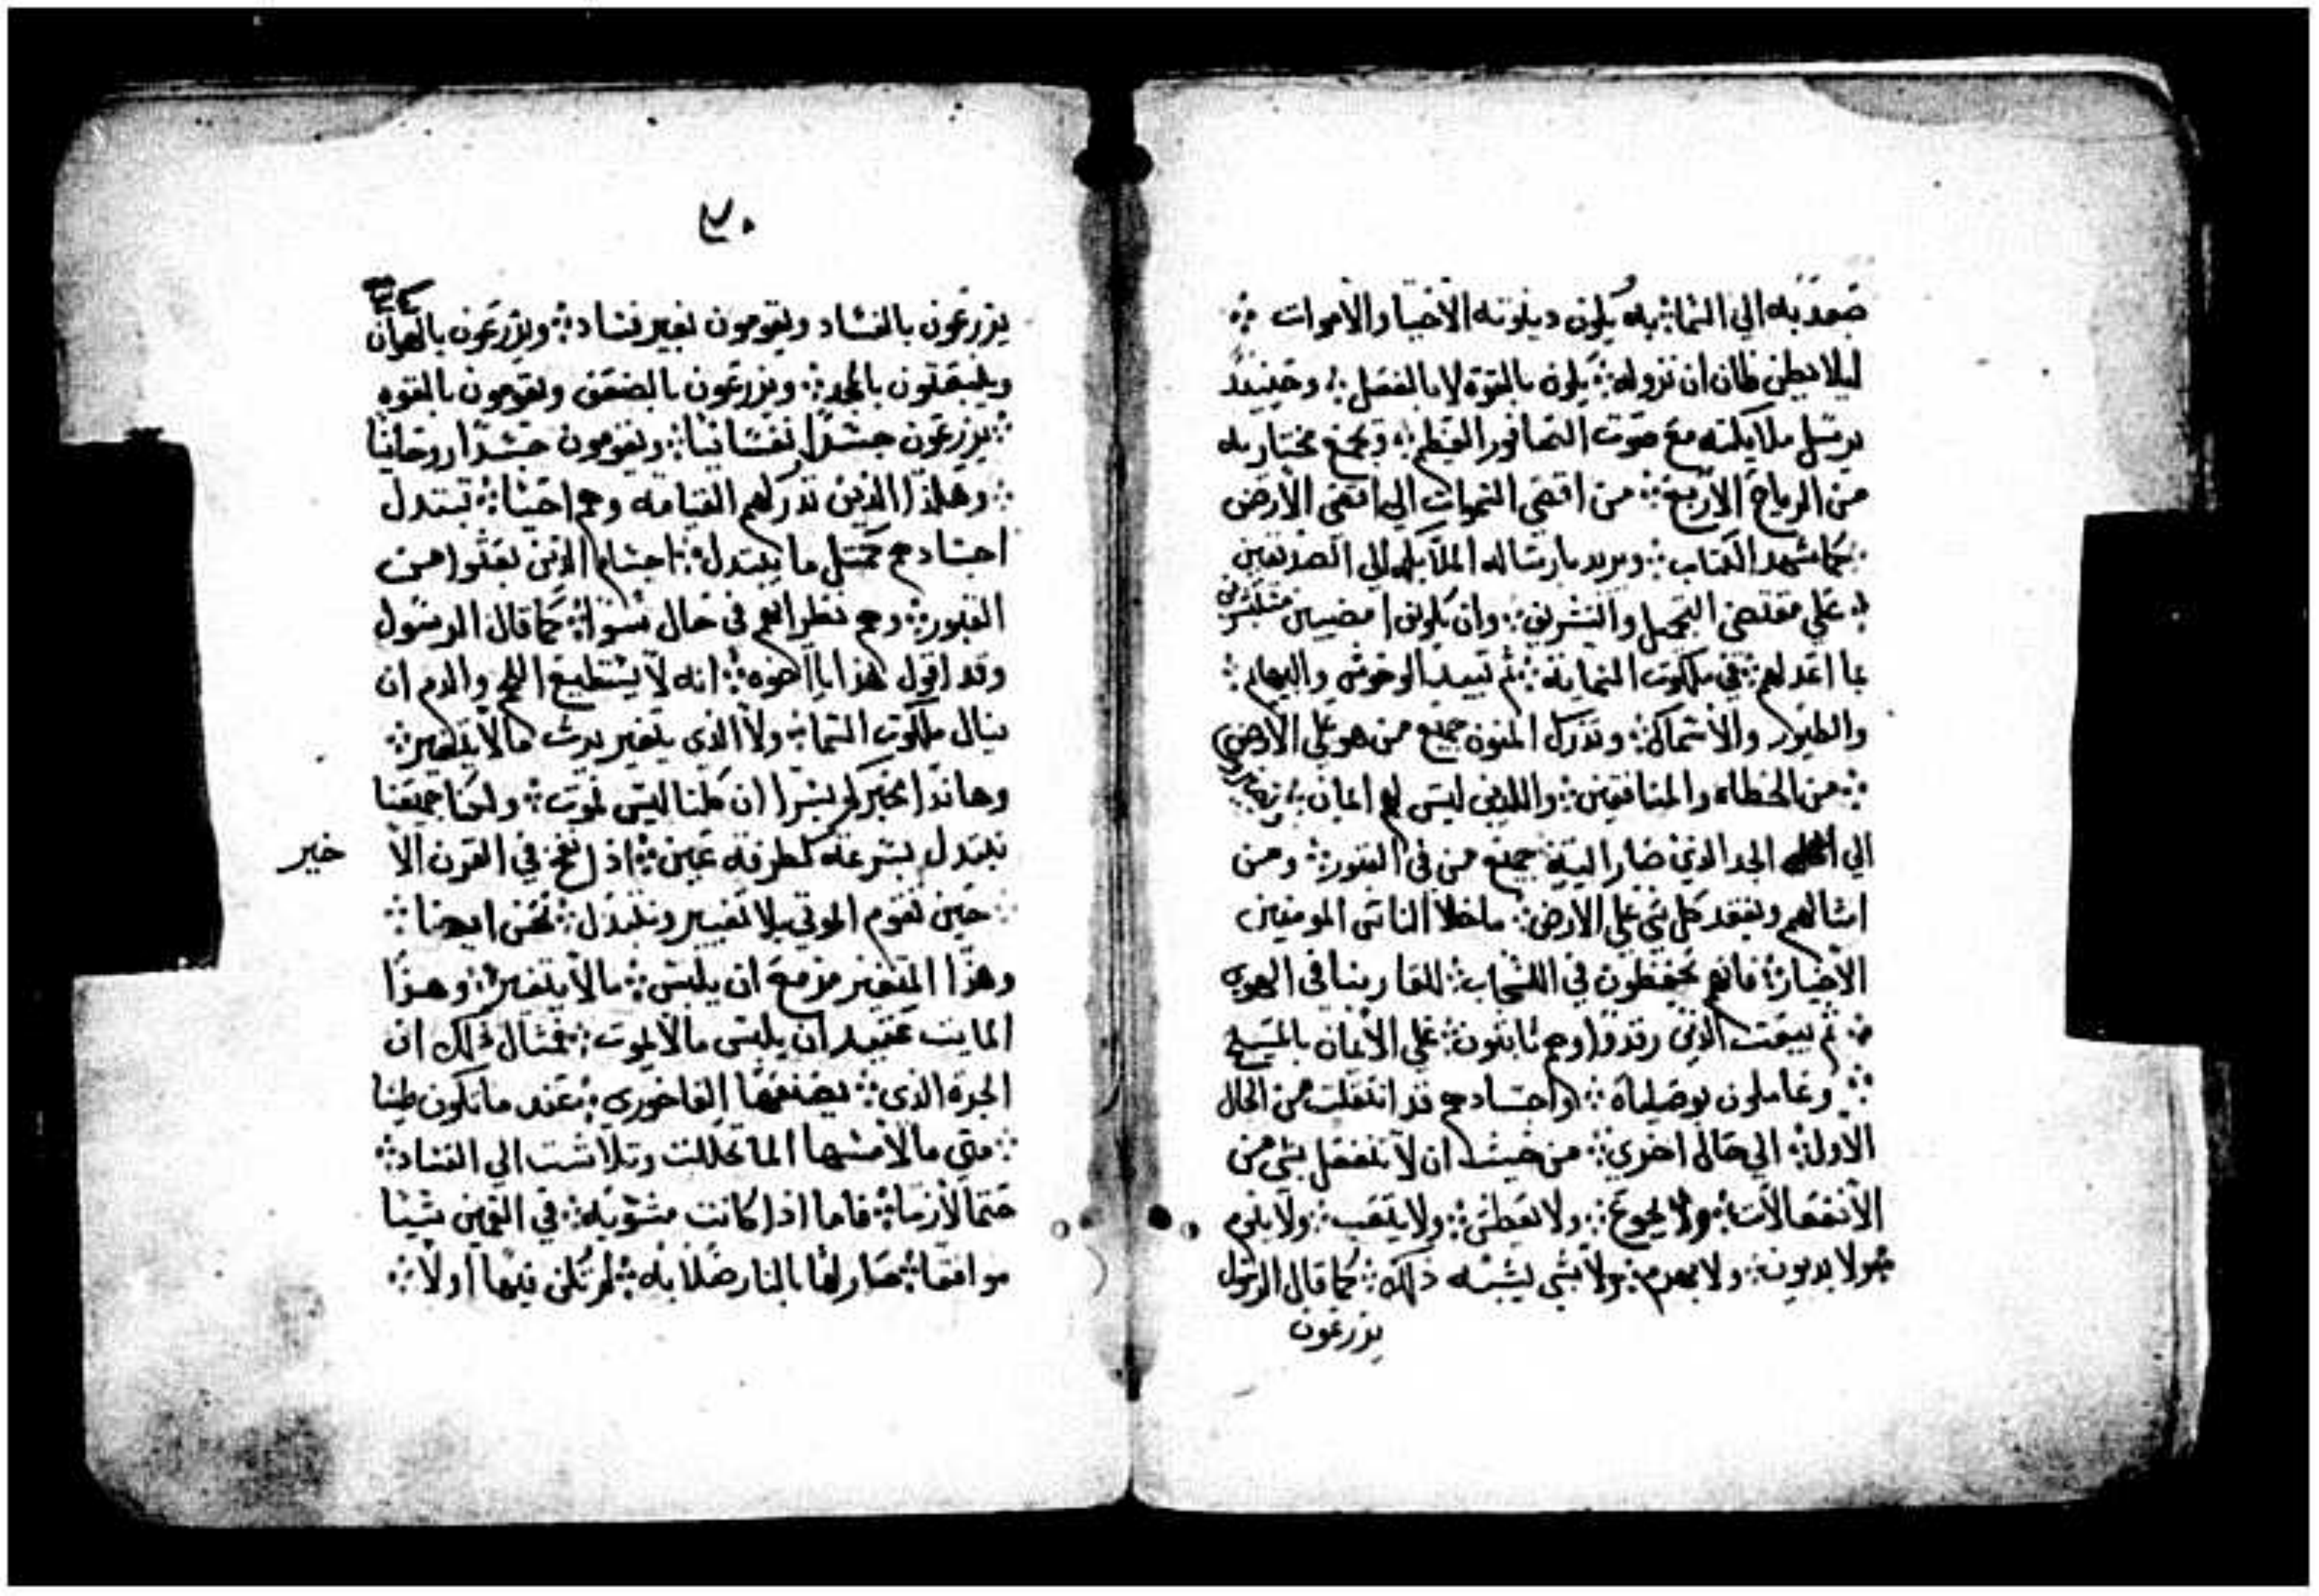 صعد به الي السما ⁘ به يكون دينونته الاحيا والاموات ⁘
ليلا يظن ظان ان نزوله ⁘ يكون بالقوة لا بالفعل ⁘ وحينيذ
يرسل ملايكته مع صوت الصافور العظيم ⁘ وتجمع مختاريه
من الرياح الاربع ⁘ من اقصي السموات الي اقصي الارض
⁘ كما شهد الكتاب ⁘ ويريد بارساله الملايكه الي الصديقين
علي مقتضي التجميل والتشريف ⁘ وان يكونوا
بما اعد لهم ⁘ في ملكوت السماية ⁘ ثم تبيد الوحوش والبهايم ⁘
والطيور والاسماك ⁘ وتدرك المنون جميع من هو علي الارض
⁘ من الخطاه والمنافقين ⁘ واللذين ليس لهم ايمان ⁘
الي الحد الذي صار اليه جميع من في القبور ⁘ ومن
امثالهم ويفقد كل شي علي الارض ⁘ ما خلا الناس المومنين
الاخيار ⁘ فانهم يحفظون في السحاب ⁘ للقا ربنا في الهوي
⁘ ثم يبعت الذين رقدوا وهم ثابتون ⁘ علي الايمان بالمسيح
⁘ وعاملون بوصاياه ⁘ واجسادهم قد انتقلت من الحال
الاول ⁘ الي حال اخري ⁘ من حيث ان لا تنفعل بشي من
الانفعالات ⁘ ولا يجوع ⁘ ولا تعطش ⁘ ولا يتعب ⁘ ولا
⁘ ولا ⁘ ولا يهرم ⁘ ولا شي يشبه ذلك ⁘ كما قال الرسول
يزرعون
٣٠
يزرعون بالفساد ويقومون بغير فساد ⁘ ويزرعون بالهوان
وينبعتون بالمجد ⁘ ويزرعون بالضعف ويقومون بالقوه
⁘ يزرعون جسدًا نفسانيا ⁘ ويقومون جسدا روحانيا
⁘ وهكذا الذين تدركهم القيامه وهم احيا ⁘ تبتدل
اجسادهم كمتل ما يبتدل ⁘ اجسام الذين بعثوا من
القبور ⁘ وهم نظرايهم في حال سوا ⁘ كما قال الرسول
وقد اقول هذا يا اخوه ⁘ انه لا يستطيع اللحم والدم ان
ينال ملكوت السما ⁘ ولا الذي يتغير يرث مالا يتغير ⁘
وهاندا مخبركم بسرا ان كلنا ليس نموت ⁘ ولكنا جميعنا
نبتدل بسرعة كطرفة عين ⁘ اذا نفخ في القرن الا
خير
⁘ حين تقوم الموتي بلا تغيير ونبتدل ⁘ نحن ايضا ⁘
وهذا المتغير مزمع ان يلبس ⁘ مالا يتغير ⁘ وهذا
المايت عتيد ان يلبس مالا يموت ⁘ فمثال ذلك ان
الجره الذي ⁘ يصنعها الفاخوري ⁘ عند ما تكون طينا
⁘ متي ما لامسها الما تحللت وتلاشت الي الفساد ⁘
حتما لازما ⁘ فاما اذا كانت مشويه ⁘ في القمين شيا
موافقا ⁘ صار لها بالنار صلابه ⁘ لم تكن فيها اولًا ⁘